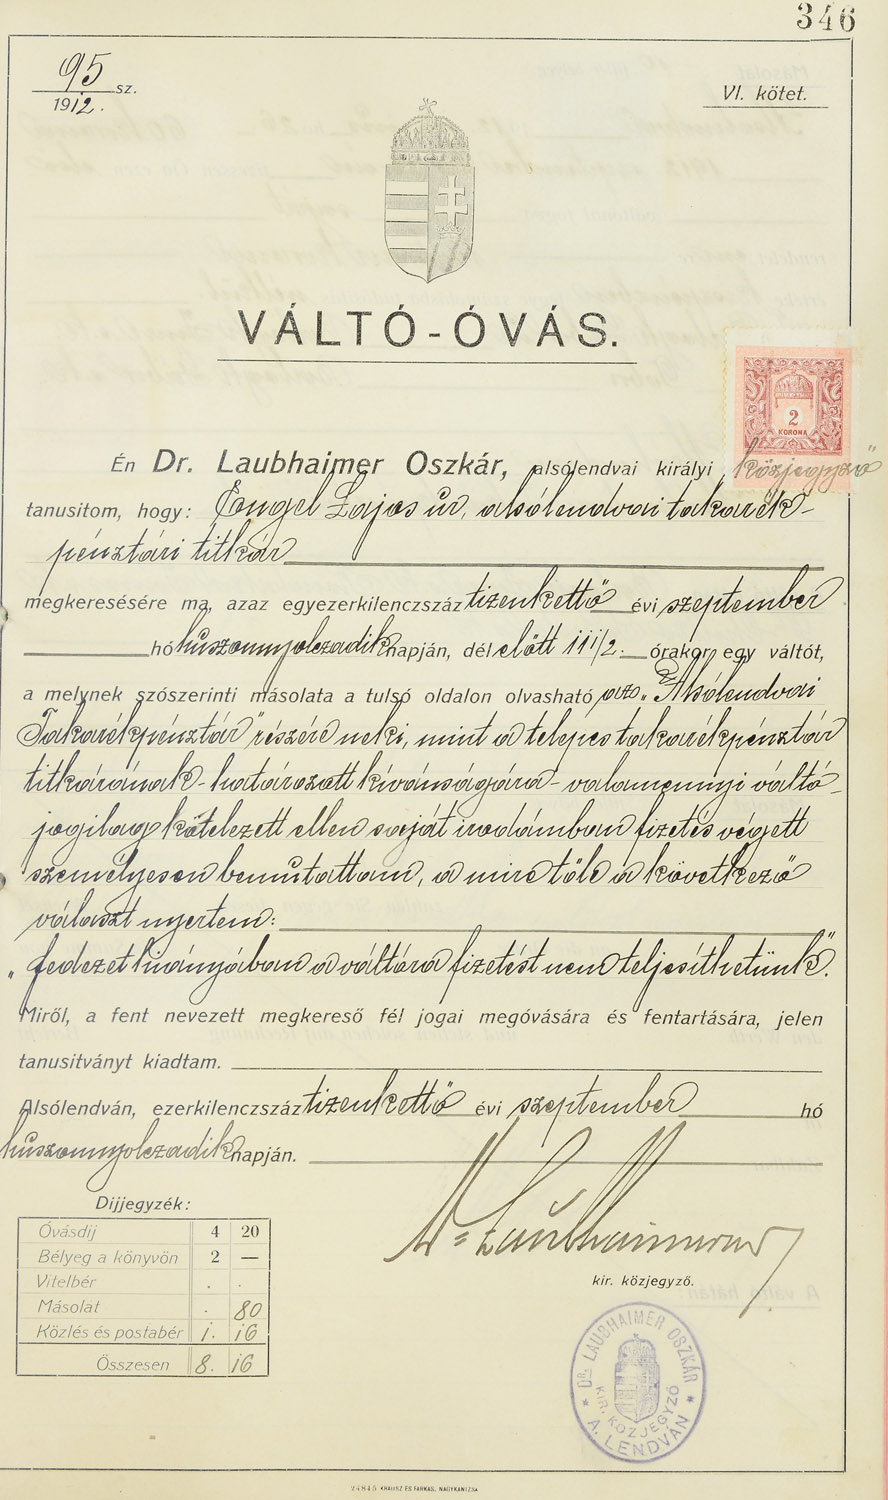 346
95 sz.
1912.
VI. kötet.
VÁLTÓ-ÓVÁS.
2
KORONA
Én Dr. Laubhaimer Oszkár, alsólendvai királyi közjegyző
tanusitom, hogy: Engel Lajos úr, alsólendvai takarék-
pénztári titkár
megkeresésére ma, azaz egyezerkilenczszáz tizenkettő évi szeptember
hó huszonnyolczadik napján, dél előtt 11 1/2. órakor egy váltót,
a melynek szószerinti másolata a tulsó oldalon olvasható az „Alsólendvai
Takarékpénztár" részére neki, mint a telepes takarékpénztár
titkárának - határozott kívánságára - valamennyi váltó-
jogilag kötelezett ellen saját irodámban fizetés végett
személyesen bemutattam, a mire tőle a következő
választ nyertem:
„fedezet hiányában a váltóra fizetést nem teljesíthetünk".
Miről, a fent nevezett megkereső fél jogai megóvására és fentartására, jelen
tanusitványt kiadtam.
Alsólendván, ezerkilenczszáz tizenkettő évi szeptember hó
huszonnyolczadik napján.
Dr Laubhaimer
kir. közjegyző.
Dijjegyzék:
Óvásdij 4 20
Bélyeg a könyvön 2 —
Vitelbér . .
Másolat . 80
Közlés és postabér 1. 16
Összesen 8. 16
DR. LAUBHAIMER OSZKÁR
KIR. KÖZJEGYZŐ
* A. LENDVÁN *
24845 KRAUSZ ÉS FARKAS, NAGYKANIZSA